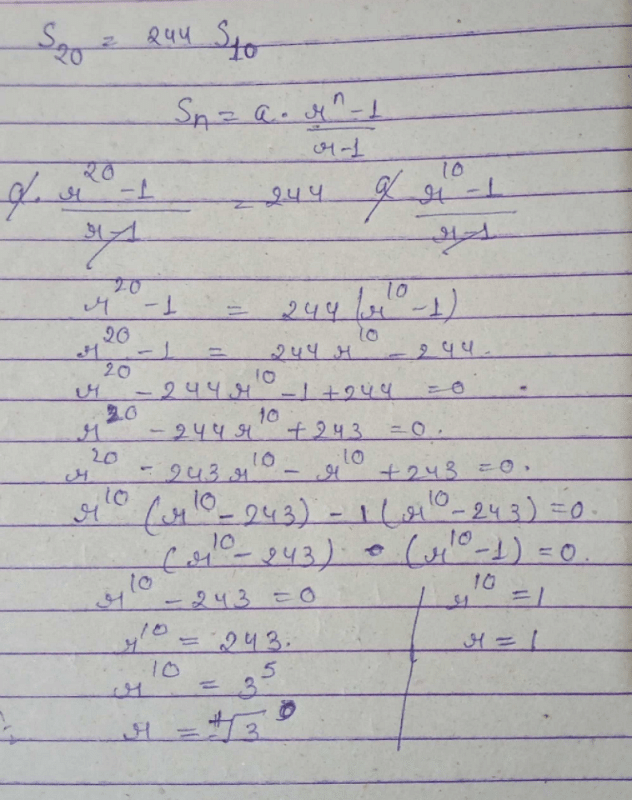 S₂₀ = 244 S₁₀
Sₙ = a · (rⁿ - 1)/(r - 1)
a · (r²⁰ - 1)/(r - 1) = 244 a (r¹⁰ - 1)/(r - 1)
r²⁰ - 1 = 244 (r¹⁰ - 1)
r²⁰ - 1 = 244 r¹⁰ - 244.
r²⁰ - 244 r¹⁰ - 1 + 244 = 0
r²⁰ - 244 r¹⁰ + 243 = 0.
r²⁰ - 243 r¹⁰ - r¹⁰ + 243 = 0.
r¹⁰ (r¹⁰ - 243) - 1 (r¹⁰ - 243) = 0.
(r¹⁰ - 243) (r¹⁰ - 1) = 0.
r¹⁰ - 243 = 0 | r¹⁰ = 1
r¹⁰ = 243. | r = 1
r¹⁰ = 3⁵
∴ r = ±√3